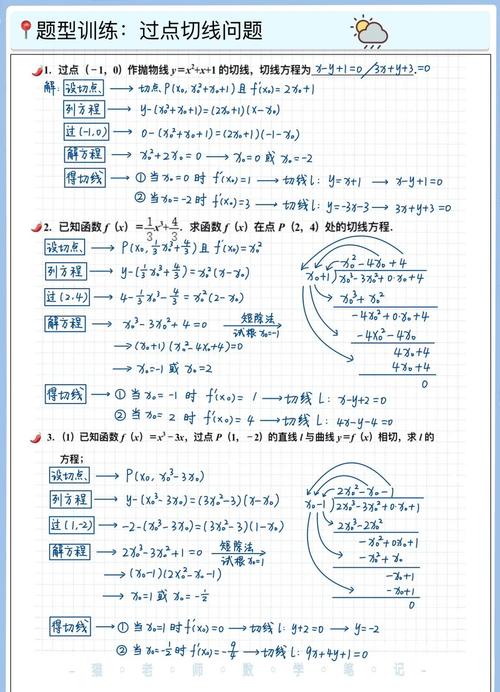 题型训练：过点切线问题
1. 过点（-1，0）作抛物线 y=x²+x+1 的切线，切线方程为 x-y+1=0 / 3x+y+3=0
解：设切点 → 切点P(x₀, x₀²+x₀+1) 且 f'(x₀)=2x₀+1
列方程 → y-(x₀²+x₀+1)=(2x₀+1)(x-x₀)
过(-1,0) → 0-(x₀²+x₀+1)=(2x₀+1)(-1-x₀)
解方程 → x₀²+2x₀=0 → x₀=0 或 x₀=-2
得切线 → ① 当 x₀=0 时 f'(x₀)=1 → 切线 l: y=x+1 → x-y+1=0
② 当 x₀=-2 时 f'(x₀)=3 → 切线 l: y=-3x-3 → 3x+y+3=0
2. 已知函数 f（x）=1/3x³+4/3. 求函数 f（x）在点 P（2，4）处的切线方程.
设切点 → P(x₀, 1/3x₀³+4/3) 且 f'(x₀)=x₀²
列方程 → y-(1/3x₀³+4/3)=x₀²(x-x₀)
过(2.4) → 4-1/3x₀³-4/3=x₀²(2-x₀)
解方程 → x₀³-3x₀²+4=0 短除法 试根x₀=-1
→ (x₀+1)(x₀²-4x₀+4)=0
→ x₀=-1 或 x₀=2
x₀²-4x₀+4
x₀+1 x₀³-3x₀²+0·x₀+4
x₀³+x₀²
-4x₀²+0·x₀+4
-4x₀²-4x₀
4x₀+4
4x₀+4
0
得切线 → ① 当 x₀=-1 时 f'(x₀)=1 → 切线 l: x-y+2=0
② 当 x₀=2 时 f'(x₀)=4 → 切线 l: 4x-y-4=0
3.（1）已知函数 f（x）=x³-3x，过点 P（1，-2）的直线 l 与曲线 y=f（x）相切，求 l 的
方程；
设切点 → P(x₀, x₀³-3x₀)
列方程 → y-(x₀³-3x₀)=(3x₀²-3)(x-x₀)
过(1,-2) → -2-(x₀³-3x₀)=(3x₀²-3)(1-x₀)
解方程 → 2x₀³-3x₀²+1=0 短除法 试根x₀=1
→ (x₀-1)(2x₀²-x₀-1)
→ x₀=1 或 x₀=-1/2
2x₀²-x₀-1
x₀-1 2x₀³-3x₀²+0·x₀+1
2x₀³-2x₀²
-x₀²+0x₀+1
-x₀²+x₀
-x₀+1
-x₀+1
0
得切线 → ① 当 x₀=1 时 f'(x₀)=0 → 切线 l: y+2=0 → y=-2
② 当 x₀=-1/2 时 f'(x₀)=-9/4 → 切线 l: 9x+4y+1=0
猫 老 师 数 学 笔 记